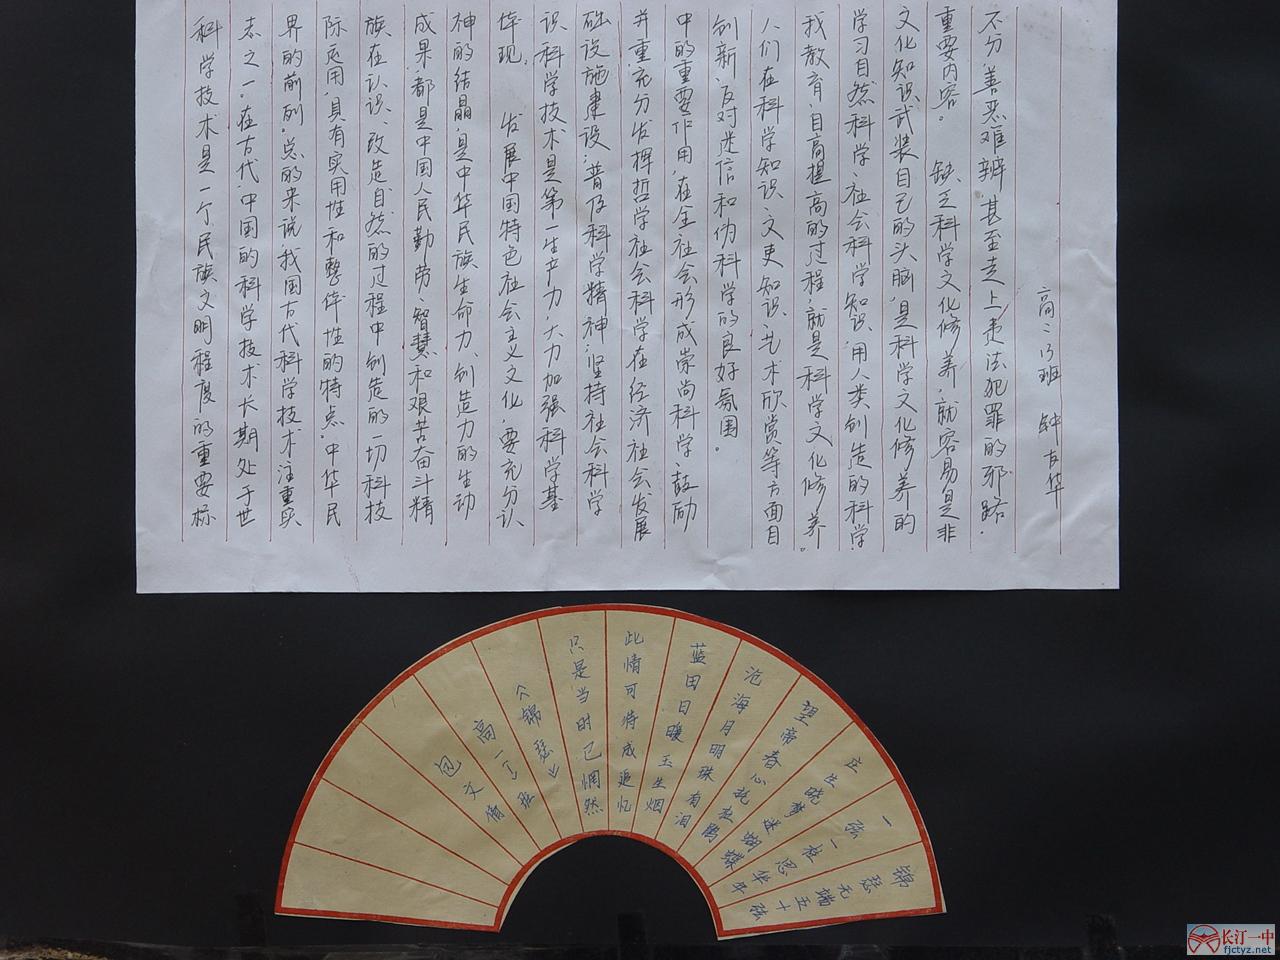 科学技术是一个民族文明程度的重要标
志之一.在古代,中国的科学技术长期处于世
界的前列.总的来说,我国古代科学技术注重实
际运用,具有实用性和整体性的特点.中华民
族在认识、改造自然的过程中创造的一切科技
成果,都是中国人民勤劳、智慧和艰苦奋斗精
神的结晶,是中华民族生命力、创造力的生动
体现. 发展中国特色社会主义文化,要充分认
识科学技术是第一生产力,大力加强科学基
础设施建设,普及科学精神,坚持社会科学
并重,充分发挥哲学社会科学在经济社会发展
中的重要作用,在全社会形成崇尚科学、鼓励
创新,反对迷信和伪科学的良好氛围。
人们在科学知识、文史知识、艺术欣赏等方面自
我教育,自高提高的过程,就是科学文化修养。
学习自然科学、社会科学知识,用人类创造的科学
文化知识武装自己的头脑,是科学文化修养的
重要内容。 缺乏科学文化修养,就容易是非
不分,善恶难辨,甚至走上违法犯罪的邪路.
高二13班 钟友华
锦瑟无端五十弦
一弦一柱思华年
庄生晓梦迷蝴蝶
望帝春心托杜鹃
沧海月明珠有泪
蓝田日暖玉生烟
此情可待成追忆
只是当时已惘然
《锦瑟》
高一(7)班
包文倩
长汀一中
fjctyz.net